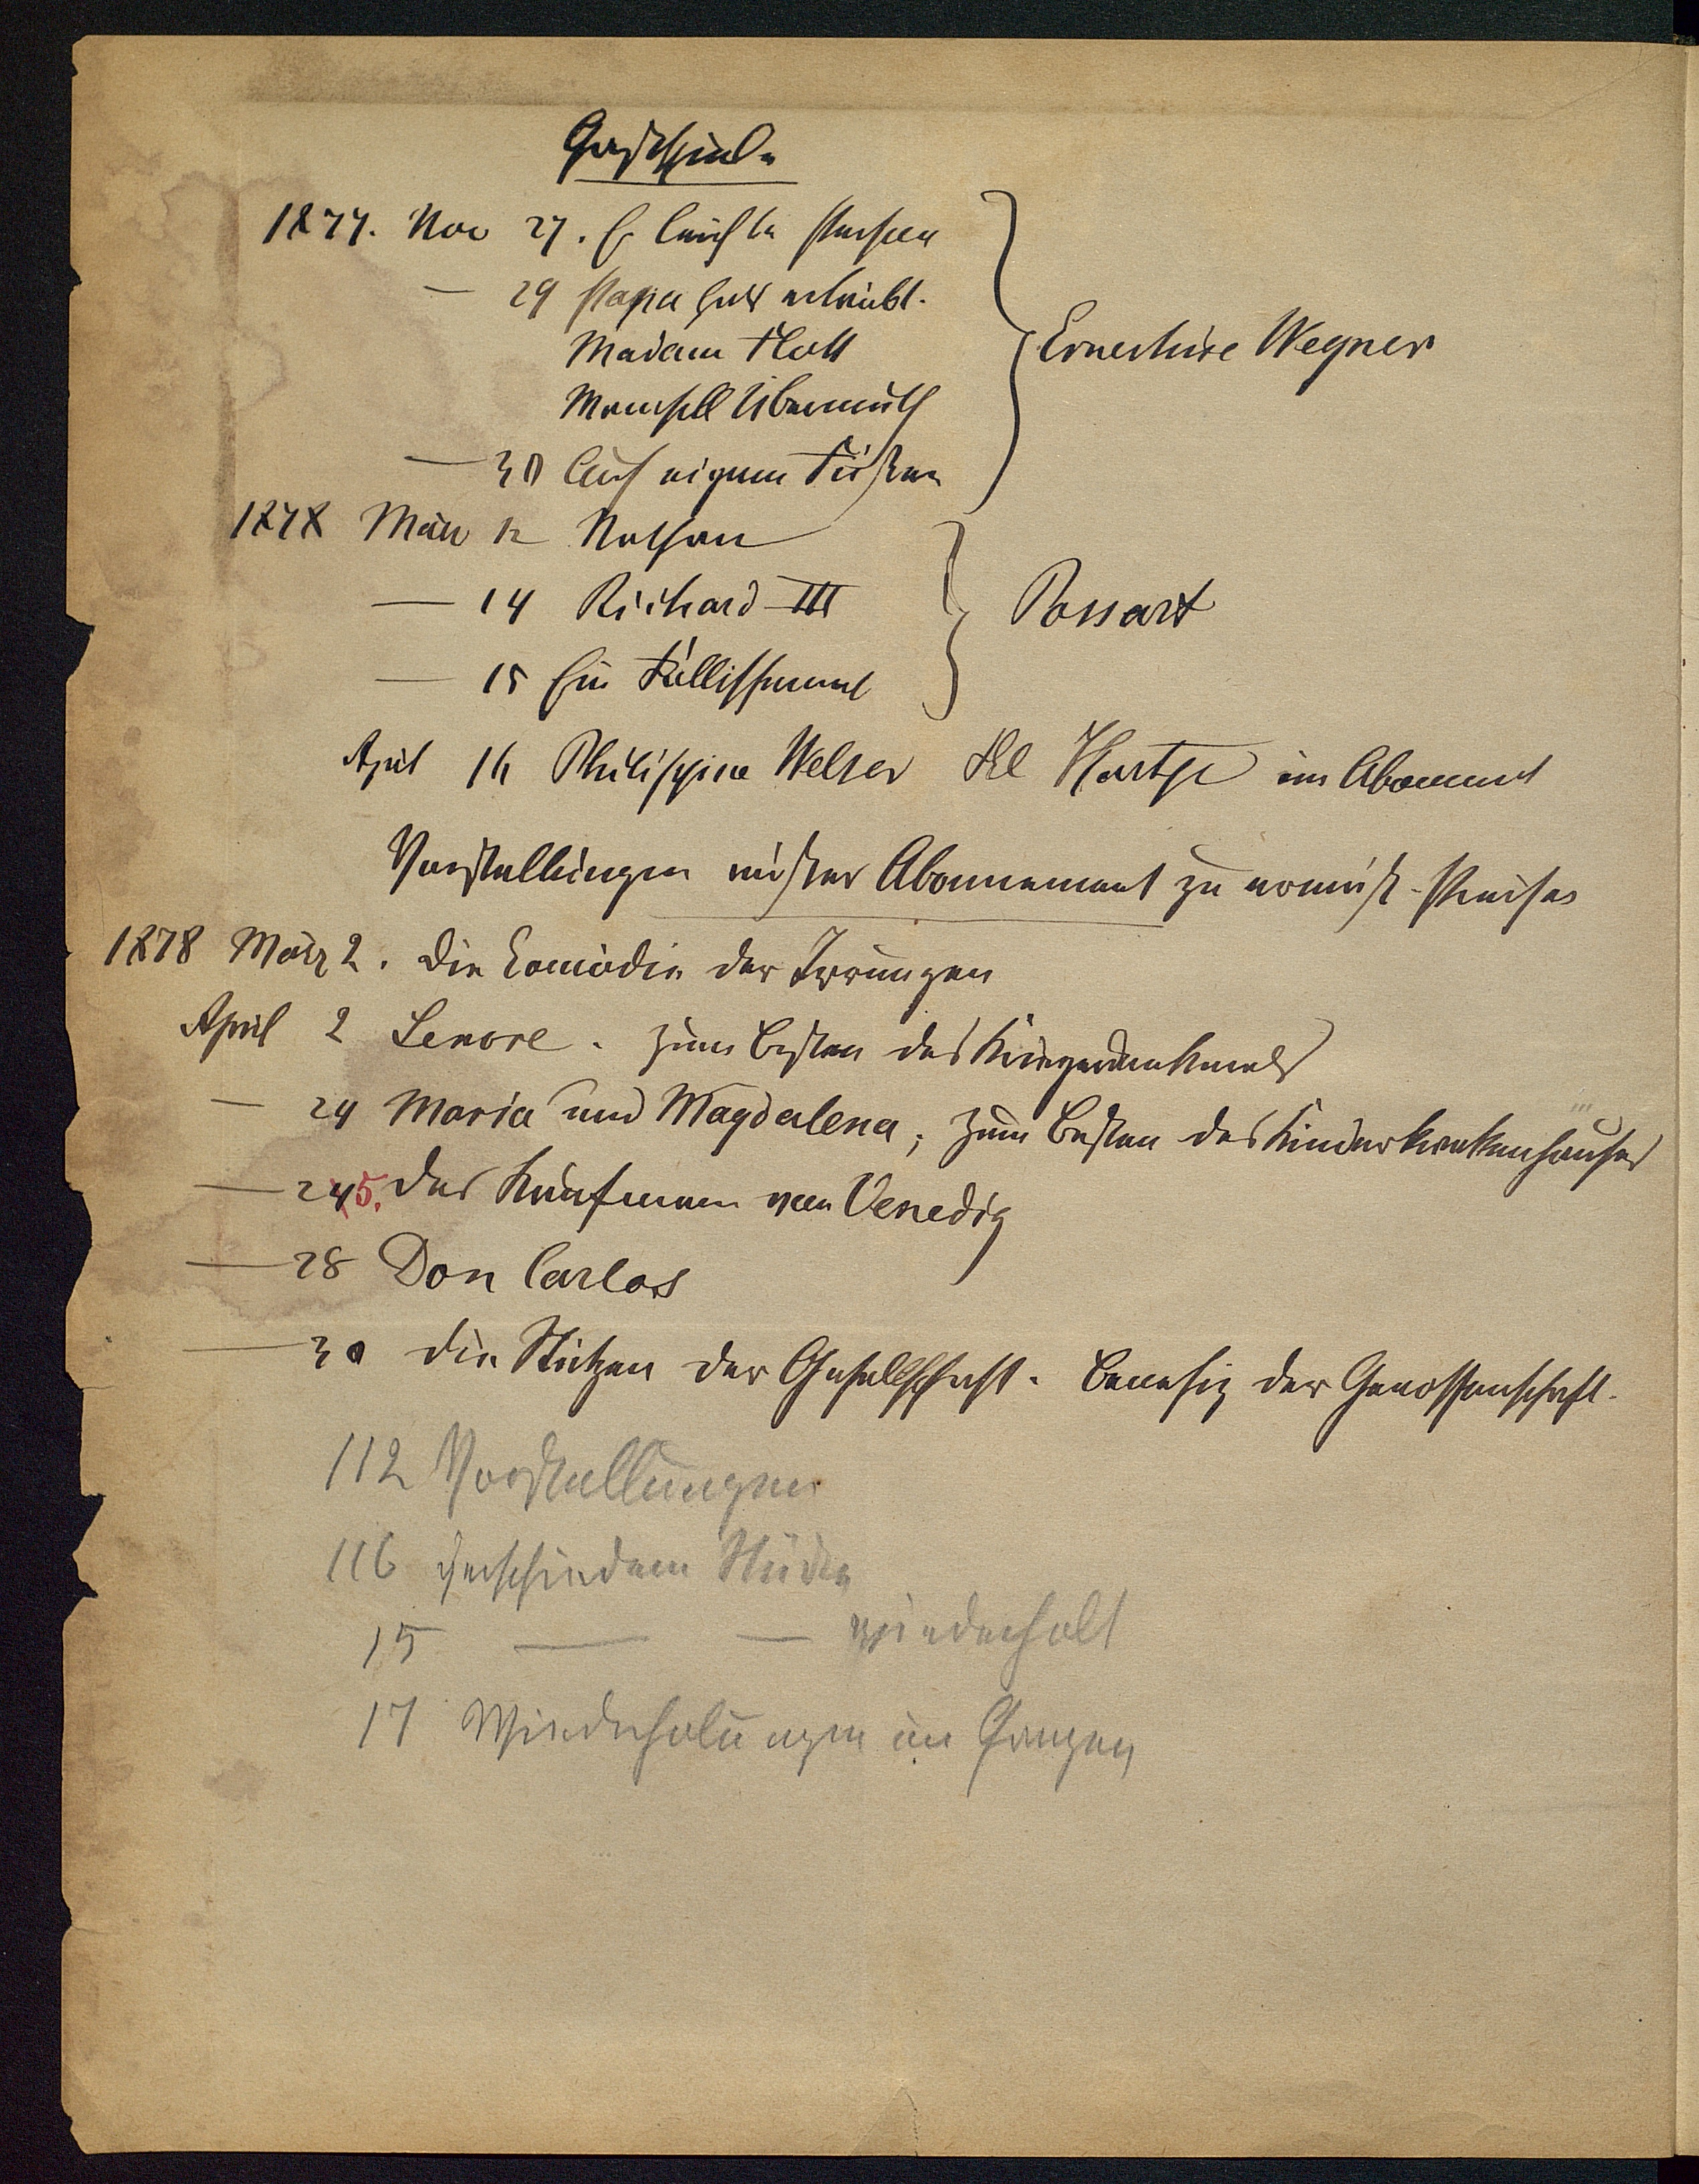 Gastspiele
1877. Nov 27. E leichte Person
— 29 Papa hat's erlaubt.
Madam Flott
Mamsell Übermuth
— 30 Auf eignen Füßen
Ernestine Wegner
1878 März 12 Nathan
— 14 Richard III
— 15 Ein Fallissement
Possart
April 16 Philippine Welser Frl im Abonnemt
Vorstellungen außer Abonnement zu ermäß. Preisen
1878 März 2. Die Comödie der Irrungen
April 2 Lenore. Zum Besten des Kriegerdenkmals
— 24 Maria und Magdalena, zum Besten des Kinderkrankenhauses
— 245. Der Kaufmann von Venedig
— 28 Don Carlos
— 30 Die Stützen der Gesellschaft. Benefiz der Genossenschaft.
112 Vorstellungen
116 verschiedene Stücke
15 — — wiederholt
17 Wiederholungen im Ganzen